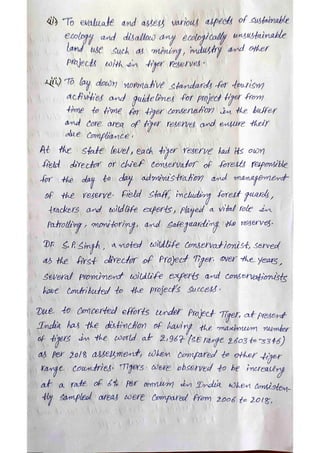 ii) To evaluate and assess various aspects of sustainable
ecology and disallow any ecologically unsustainable
land use such as mining, industry and other
projects with in tiger reserves.
iii) To lay down normative standards for tourism
activities and guidelines for project tiger from
time to time for tiger conservation in the buffer
and core area of tiger reserves and ensure their
due compliance.
At the state level, each tiger reserve had its own
field director or chief conservator of forests responsible
for the day to day administration and management
of the reserve. Field staff, including forest guards,
trackers and wildlife experts, played a vital role in
patrolling, monitoring, and safeguarding the reserves.
Dr S.P. Singh, a noted wildlife conservationist, served
as the first director of Project Tiger. Over the years,
several prominent wildlife experts and conservationists
have contributed to the project's success.
Due to concerted efforts under Project Tiger, at present
India has the distinction of having the maximum number
of tigers in the world at 2,967 (SE range 2603 to 3346)
as per 2018 assessment, when compared to other tiger
range countries. Tigers were observed to be increasing
at a rate of 6% per annum in India when consisten-
tly sampled areas were compared from 2006 to 2018.